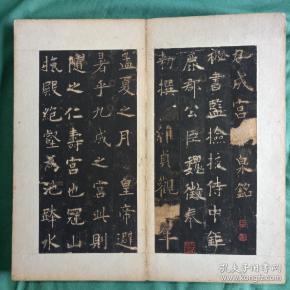 九成宫 泉銘
秘書監撿挍侍中鉅
鹿郡公臣魏徵奉
勑撰 維貞觀 年
孟夏之月 皇帝避
暑乎九成之宫此則
隨之仁壽宫也冠山
抗殿絶壑為池跨水
孔夫子旧书网